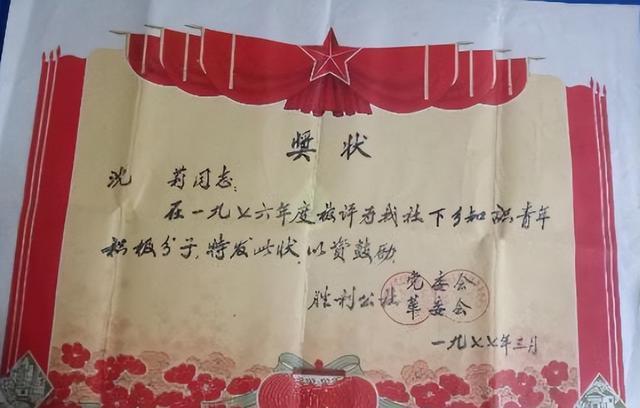 奖状
沈莉同志:
在一九七六年度被评为我社下乡知识青年
积极分子,特发此状,以资鼓励.
胜利公社 党委会
革委会
一九七七年三月